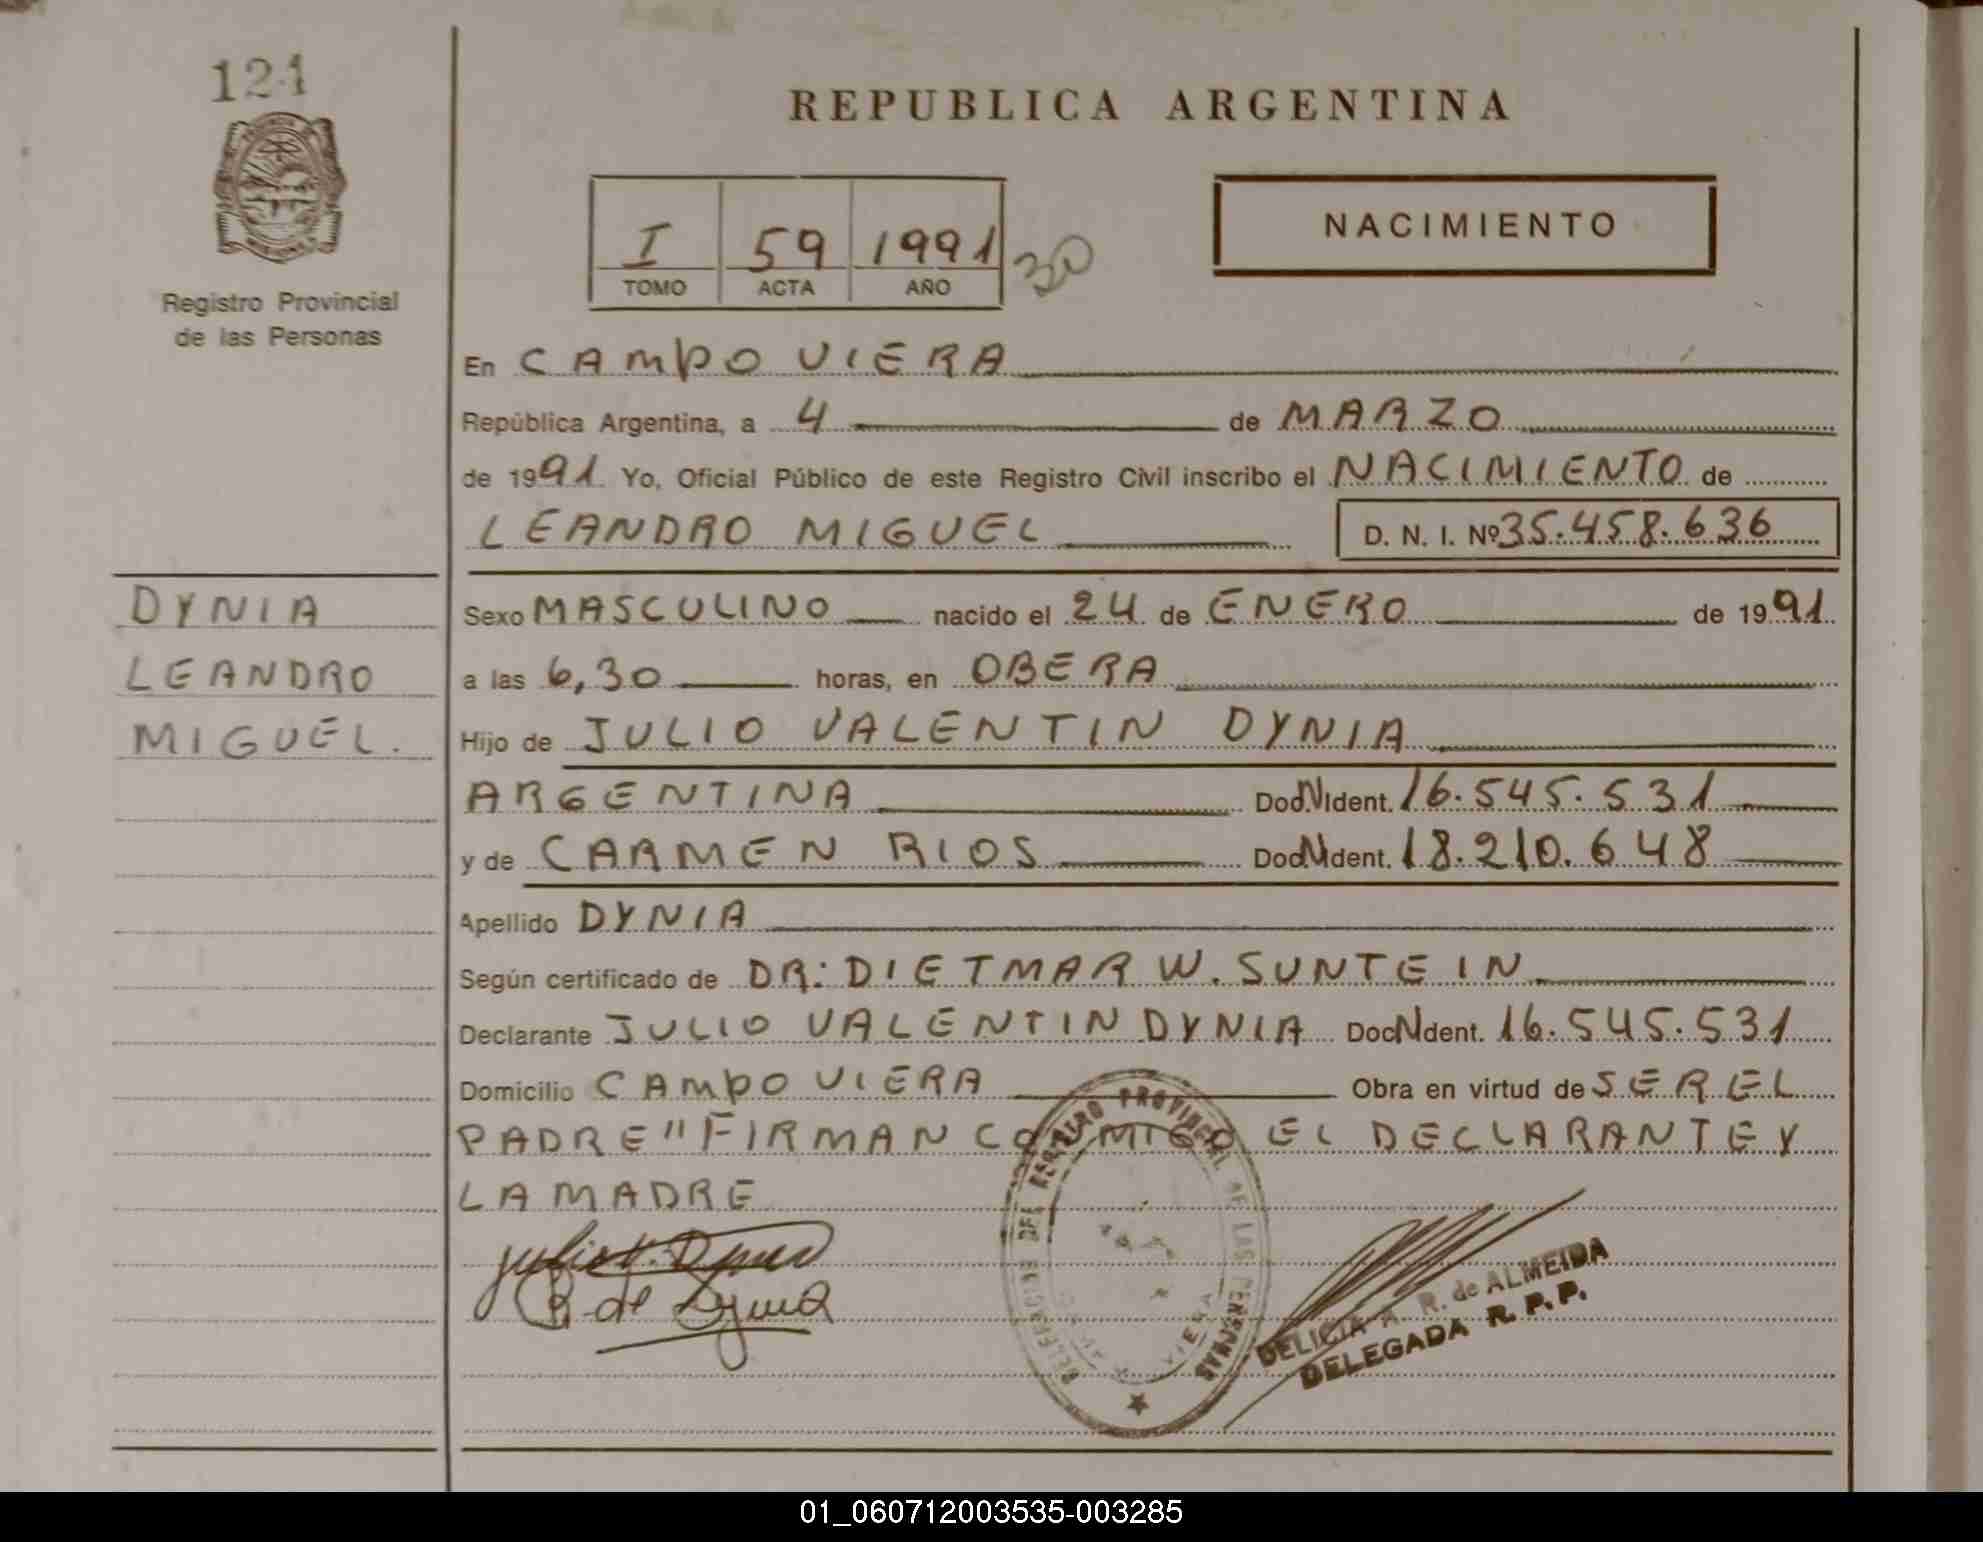 124
REPUBLICA ARGENTINA
NACIMIENTO
I 59 1991 30
TOMO ACTA AÑO
Registro Provincial
de las Personas
En CAMPO VIERA
República Argentina, a 4 de MARZO
de 1991 Yo, Oficial Público de este Registro Civil inscribo el NACIMIENTO de
LEANDRO MIGUEL D. N. I. Nº 35.458.636
DYNIA
LEANDRO
MIGUEL.
Sexo MASCULINO nacido el 24 de ENERO de 1991
a las 6,30 horas, en OBERA
Hijo de JULIO VALENTIN DYNIA
ARGENTINA Doc.N Ident. 16.545.531
y de CARMEN RIOS Doc.N Ident. 18.210.648
Apellido DYNIA
Según certificado de DR: DIETMAR W. SUNTEIN
Declarante JULIO VALENTIN DYNIA Doc.N Ident. 16.545.531
Domicilio CAMPO VIERA Obra en virtud de SER EL
PADRE" FIRMAN CONMIGO EL DECLARANTE Y
LA MADRE
Julio V. Dynia
R. de Dynia
REGISTRO PROVINCIAL DE LAS PERSONAS
VIERA
DELICIA A. R. de ALMEIDA
DELEGADA R. P. P.
01_060712003535-003285